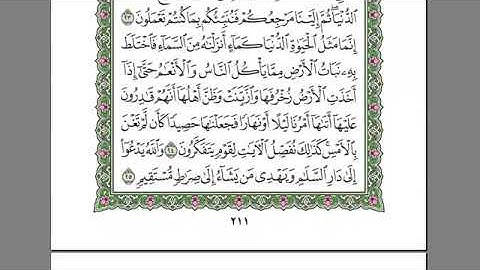 الدُّنْيَا ثُمَّ إِلَيْنَا مَرْجِعُكُمْ فَنُنَبِّئُكُم بِمَا كُنتُمْ تَعْمَلُونَ ٢٣
إِنَّمَا مَثَلُ الْحَيَوٰةِ الدُّنْيَا كَمَآءٍ أَنزَلْنَٰهُ مِنَ السَّمَآءِ فَاخْتَلَطَ
بِهِۦ نَبَاتُ الْأَرْضِ مِمَّا يَأْكُلُ النَّاسُ وَالْأَنْعَٰمُ حَتَّىٰٓ إِذَآ
أَخَذَتِ الْأَرْضُ زُخْرُفَهَا وَازَّيَّنَتْ وَظَنَّ أَهْلُهَآ أَنَّهُمْ قَٰدِرُونَ
عَلَيْهَآ أَتَىٰهَآ أَمْرُنَا لَيْلًا أَوْ نَهَارًا فَجَعَلْنَٰهَا حَصِيدًا كَأَن لَّمْ تَغْنَ
بِالْأَمْسِ كَذَٰلِكَ نُفَصِّلُ الْءَايَٰتِ لِقَوْمٍ يَتَفَكَّرُونَ ٢٤ وَاللَّهُ يَدْعُوٓا۟
إِلَىٰ دَارِ السَّلَٰمِ وَيَهْدِى مَن يَشَآءُ إِلَىٰ صِرَٰطٍ مُّسْتَقِيمٍ ٢٥
٢١١